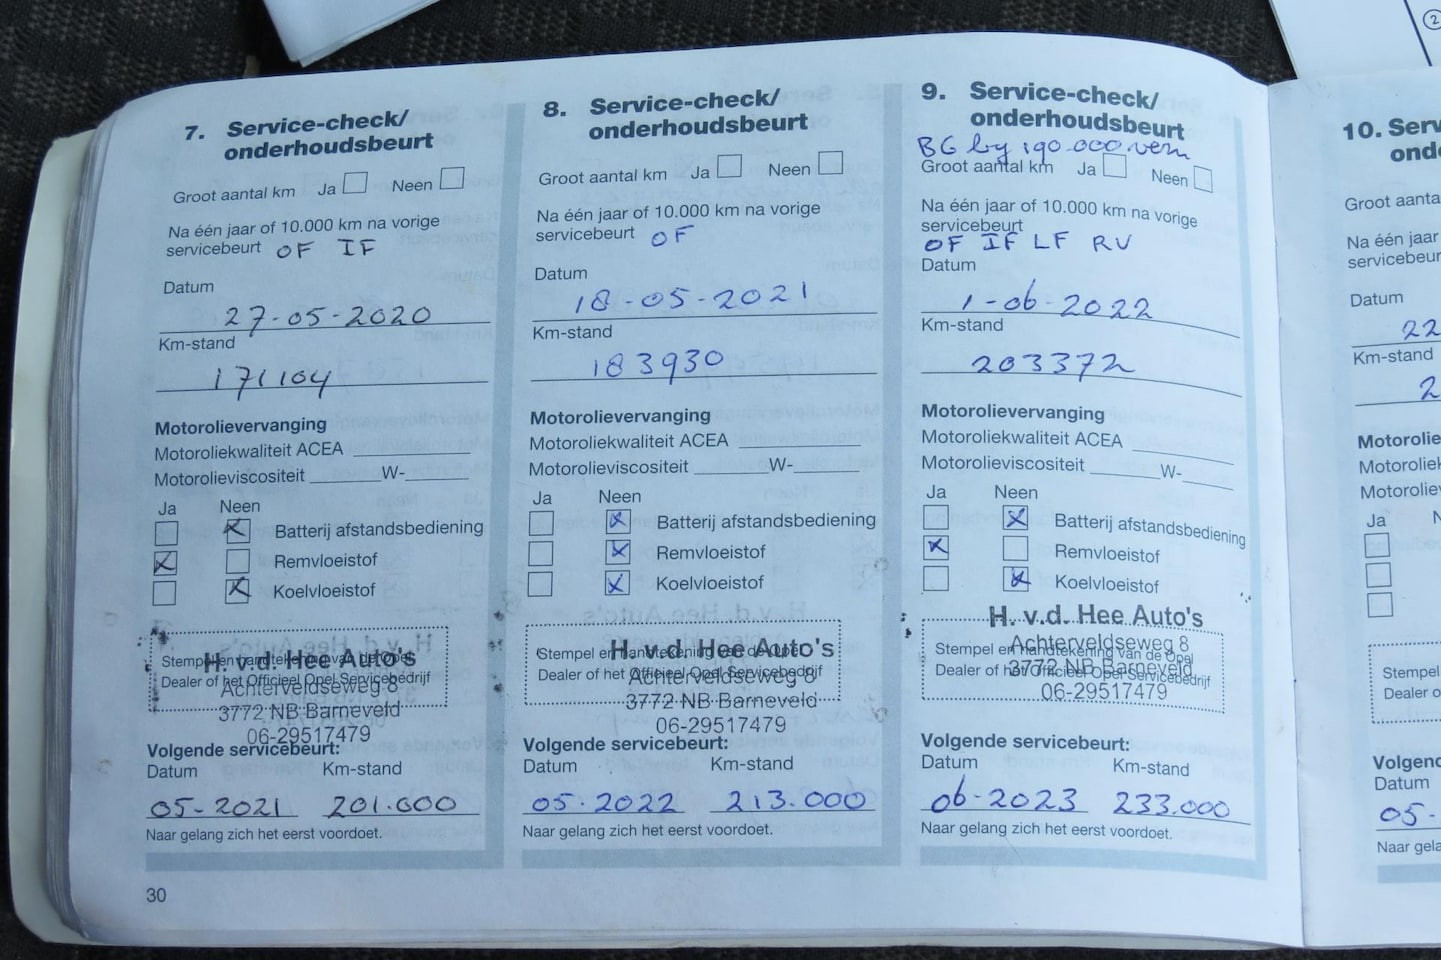 7. Service-check/
onderhoudsbeurt
Groot aantal km Ja Neen
Na één jaar of 10.000 km na vorige
servicebeurt OF IF
Datum
27-05-2020
Km-stand
171104
Motorolievervanging
Motoroliekwaliteit ACEA
Motorolieviscositeit W-
Ja Neen
Batterij afstandsbediening
Remvloeistof
Koelvloeistof
H. v.d. Hee Auto's
Stempel en handtekening van de Opel
Dealer of het Officieel Opel Servicebedrijf
Achterveldseweg 8
3772 NB Barneveld
06-29517479
Volgende servicebeurt:
Datum Km-stand
05-2021 201.000
Naar gelang zich het eerst voordoet.
30
8. Service-check/
onderhoudsbeurt
Groot aantal km Ja Neen
Na één jaar of 10.000 km na vorige
servicebeurt OF
Datum
18-05-2021
Km-stand
183930
Motorolievervanging
Motoroliekwaliteit ACEA
Motorolieviscositeit W-
Ja Neen
Batterij afstandsbediening
Remvloeistof
Koelvloeistof
H. v.d. Hee Auto's
Stempel en handtekening van de Opel
Dealer of het Officieel Opel Servicebedrijf
Achterveldseweg 8
3772 NB Barneveld
06-29517479
Volgende servicebeurt:
Datum Km-stand
05-2022 213.000
Naar gelang zich het eerst voordoet.
9. Service-check/
onderhoudsbeurt
BG by 190.000 vern
Groot aantal km Ja Neen
Na één jaar of 10.000 km na vorige
servicebeurt
OF IF LF RV
Datum
1-06-2022
Km-stand
203372
Motorolievervanging
Motoroliekwaliteit ACEA
Motorolieviscositeit W-
Ja Neen
Batterij afstandsbediening
Remvloeistof
Koelvloeistof
H. v.d. Hee Auto's
Achterveldseweg 8
Stempel en handtekening van de Opel
3772 NB Barneveld
Dealer of het Officieel Opel Servicebedrijf
06-29517479
Volgende servicebeurt:
Datum Km-stand
06-2023 233.000
Naar gelang zich het eerst voordoet.
2
10. Serv
ond
Groot aanta
Na één jaar
servicebeur
Datum
22
Km-stand
2
Motorolie
Motoroliek
Motorolie
Ja N
Stempel
Dealer o
Volgen
Datum
05-
Naar gela